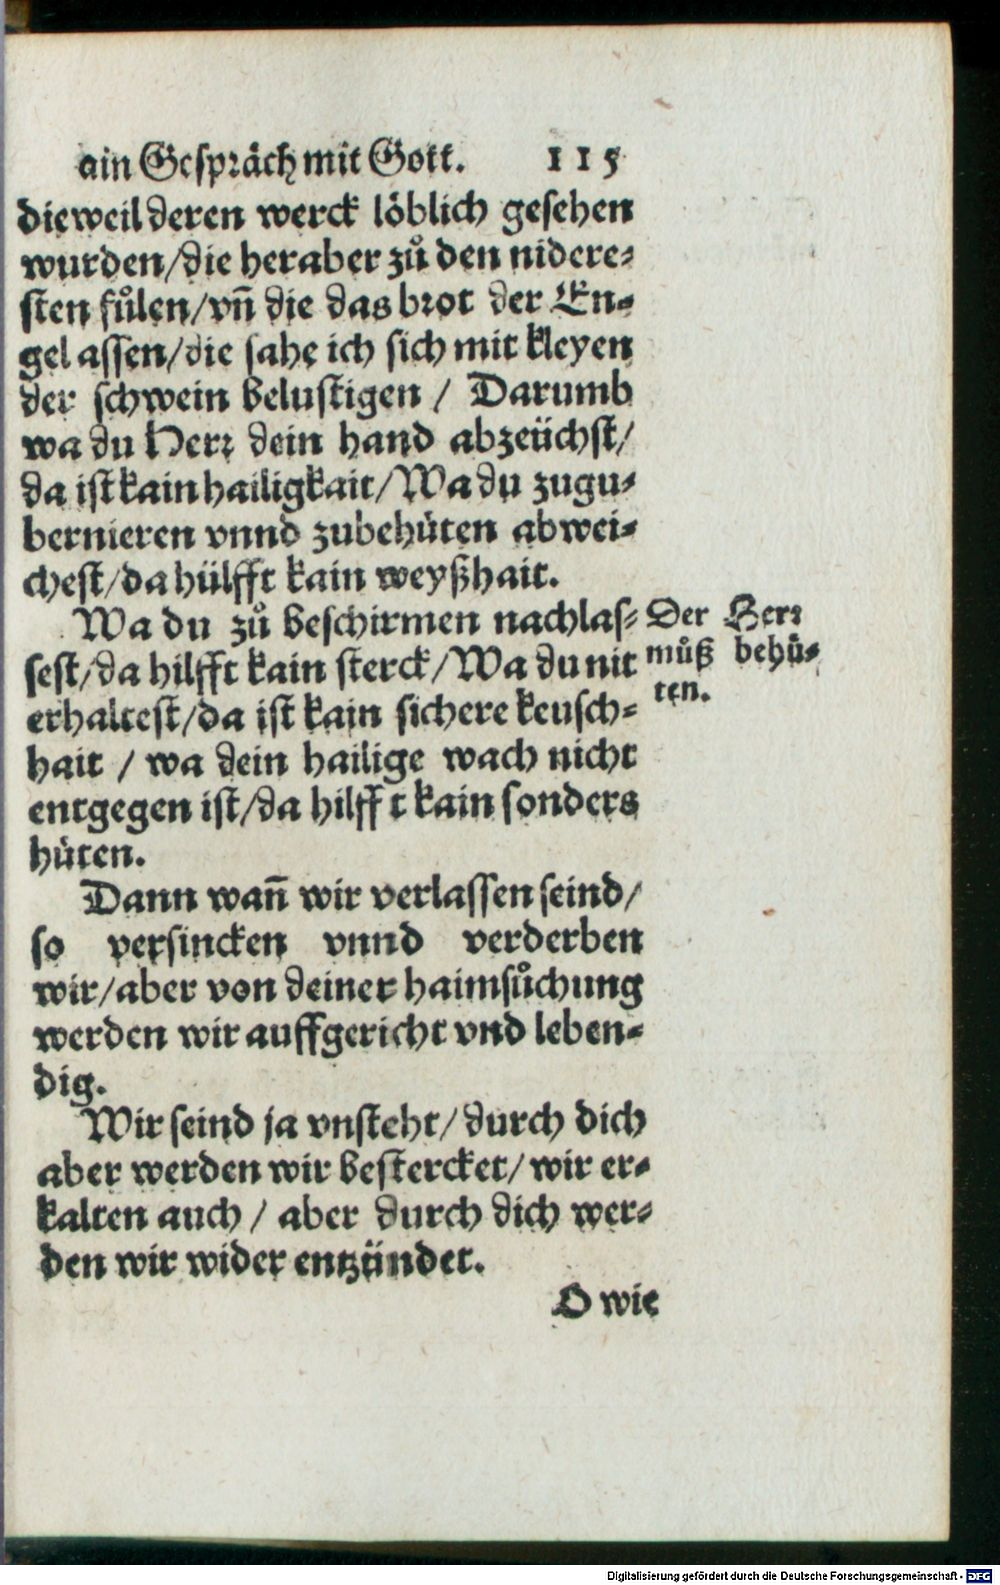 ain Gespräch mit Gott. 115
dieweil deren werck löblich gesehen
wurden/die heraber zů den nidere⸗
sten fůlen/vñ die das brot der En⸗
gel assen/die sahe ich sich mit kleyen
der schwein belustigen / Darumb
wa du Herr dein hand abzeüchst/
da ist kain hailigkait/Wa du zugu⸗
bernieren vnnd zubehüten abwei⸗
chest/da hülfft kain weyßhait.
Wa du zů beschirmen nachlas⸗
sest/da hilfft kain sterck/Wa du nit
erhaltest/da ist kain sichere keusch⸗
hait / wa dein hailige wach nicht
entgegen ist/da hilfft kain sonders
hüten.
Der Herr
můß behü⸗
ten.
Dann wañ wir verlassen seind/
so versincken vnnd verderben
wir/aber von deiner haimsůchung
werden wir auffgericht vnd leben⸗
dig.
Wir seind ja vnsteht/durch dich
aber werden wir bestercket/wir er⸗
kalten auch / aber durch dich wer⸗
den wir wider entzündet.
O wie
Digitalisierung gefördert durch die Deutsche Forschungsgemeinschaft - DFG